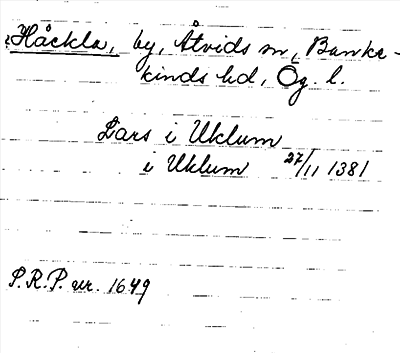 Håckla, by, Åtvids sn, Banke-
kinds hd, Ög. l.
Lars i Uklum
i Uklum 27/11 1381
P.R.P. nr. 1649